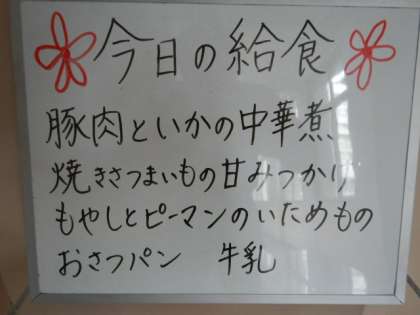 今日の給食
豚肉といかの中華煮
焼きさつまいもの甘みつかり
もやしとピーマンのいためもの
おさつパン 牛乳